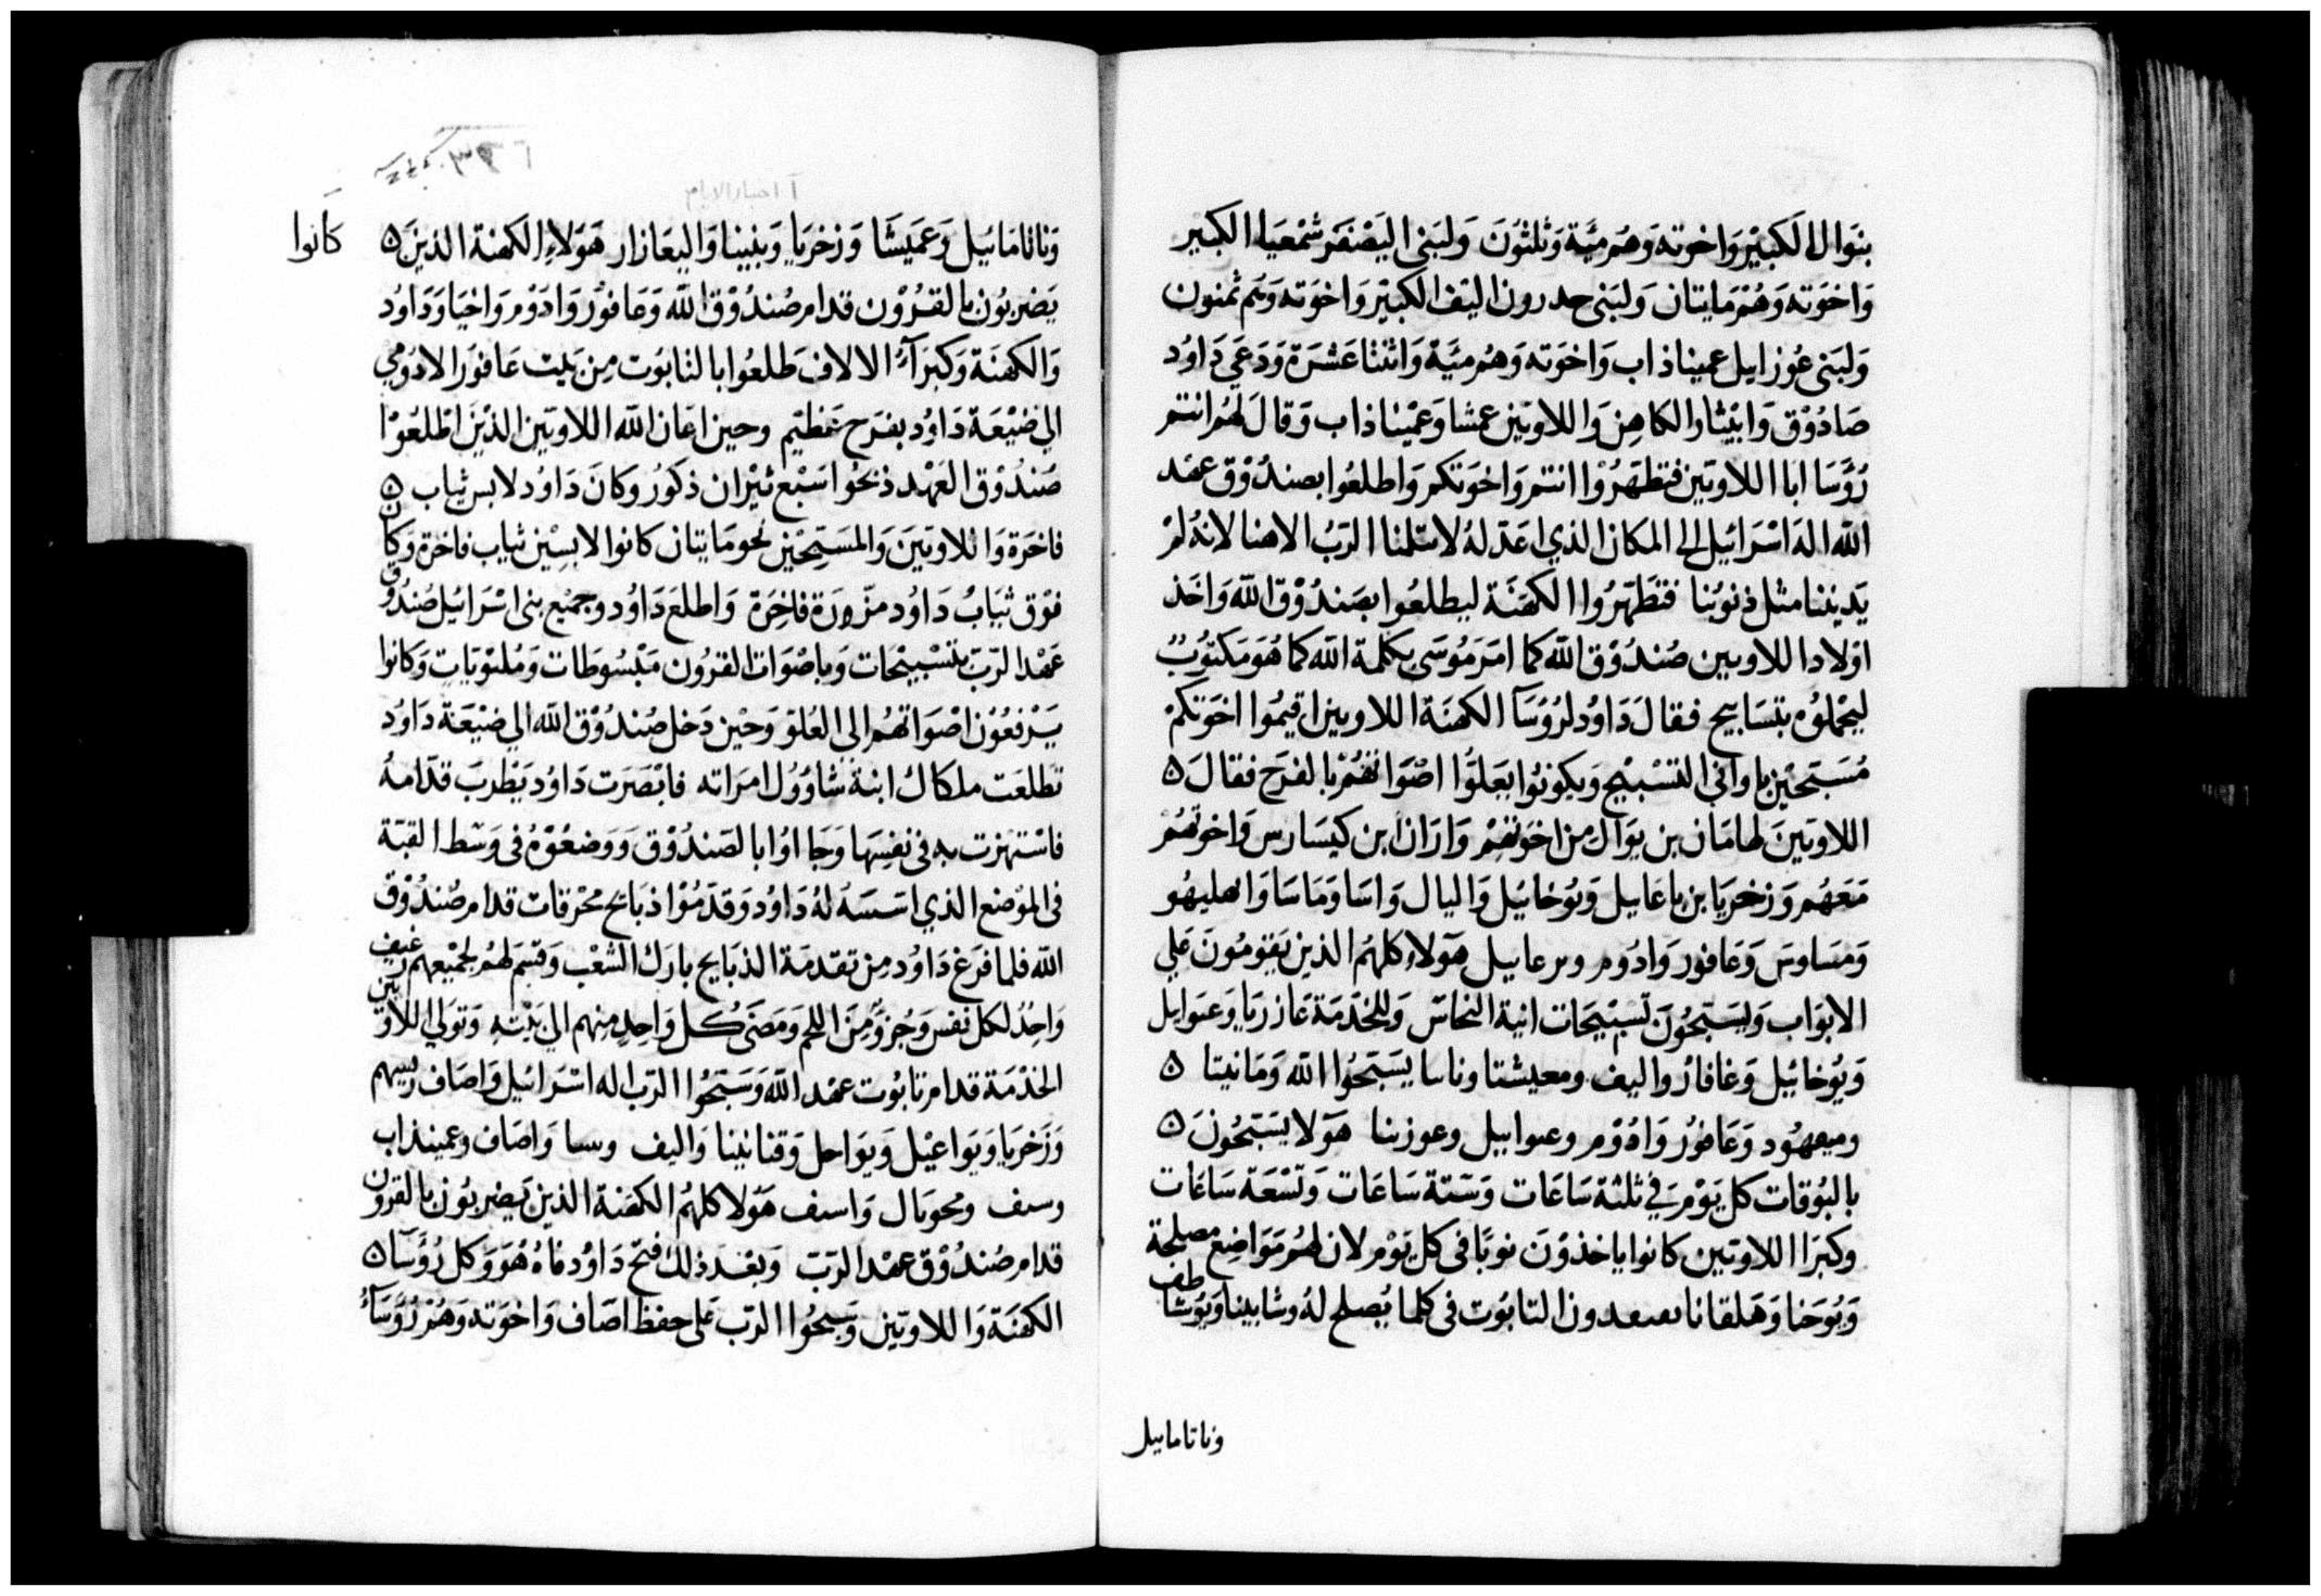 بنوال الكبير واخوته وهم مية وثلثون ولبنى اليصنفر شمعيا الكبير
واخوته وهم مايتان ولبنى حدرون اليف الكبير واخوته وهم ثمنون
ولبنى عوزاييل عميناذاب واخوته وهم مية واثنتا عشرة ودعي داود
صادوق وابيثار الكاهن واللاويين عمشا وعميناذاب وقال لهم انتم
روسا ابا اللاويين فتطهروا انتم واخوتكم واطلعوا بصندوق عهد
الله اله اسرائيل الى المكان الذي اعد له لا سلمنا الرب الاهنا لانه لم
يديننا مثل ذنوبنا فتطهروا الكهنة ليطلعوا بصندوق الله واخذ
اولاد اللاويين صندوق الله كما امر موسى بكلمة الله كما هو مكتوب
ليحملوه بتسابيح فقال داود لروسا الكهنة اللاويين اقيموا اخوتكم
مسبحين باواني التسبيح ويكونوا بعلوا اصواتهم بالفرح فقال ٥
اللاويين لهامان بن يوال من اخوتهم واراان ابن كيسارس واخوتهم
معهم وزخريا بن ياعاييل ويوخائيل واليال واسا وماسا واهليهو
ومساوس وعافور وادوم وىرعاييل هولا كلهم الذين يقومون علي
الابواب وليسبحون تسبيحات انية النحاس وللخدمة عازريا وعىوايل
ويوخائيل وغافار واليف ومعيشتا وناسا يسبحوا الله ومانيتا ٥
وميعهود وعافور وادوم وعىواييل وعوزىىا هولا يسبحون ٥
بالبوقات كل يوم في ثلثة ساعات وستة ساعات وتسعة ساعات
وكبرا اللاويين كانوا ياخذون نوبا فى كل يوم لان لهم مواضع مصلحة
ويوحنا وهلقانا ىصعدون التابوت فى كلما يصلح له وشابينا ويوشاطف
وناتاماييل
آ اخبار الايام
وناتامائيل وعميشا وزخريا وبنينا واليعازار هولاء الكهنة الذين ٥ كانوا
يضربون بالقرون قدام صندوق الله وعافور وادوم واخيا وداود
والكهنة وكبرآء الالاف طلعوا بالتابوت من بيت عافور الادومي
الي ضيعة داود بفرح عظيم وحين اعان الله اللاويين الذين اطلعوا
صندوق العهد ذبحوا سبع ثيران ذكور وكان داود لابس ثياب ٥
فاخرة واللاويين والمسبحين نحو مايتان كانوا لابسين ثياب فاخرة وكان
فوق ثياب داود مزورة فاخرة واطلع داود وجميع بنى اسرائيل صندوق
عهد الرب بتسبيحات وباصوات القرون مبسوطات وملتويات وكانوا
يرفعون اصواتهم الى العلو وحين دخل صندوق الله الي ضيعة داود
تطلعت ملكال ابنة شاوول امراته فابصرت داود يطرب قدامه
فاستهزت به فى نفسها وجااوا بالصندوق ووضعوه فى وسط القبة
فى الموضع الذي اسسه له داود وقدموا ذبايح محرقات قدام صندوق
الله فلما فرغ داود من تقدمة الذبايح بارك الشعب وقسم لهم لجميعهم رغيف
واحد لكل نفس وجزو من اللحم ومضى كل واحد منهم الي بيته وتولى اللاويين
الخدمة قدام تابوت عهد الله وسبحوا الرب اله اسرائيل واصاف ريسهم
وزخريا ويواعيل ويواحل وقنانينا واليف وىسا واصاف وعمينذاب
وسىف ومحويال واسىف هولا كلهم الكهنة الذين يضربون بالقرون
قدام صندوق عهد الرب وبعد ذلك فتح داود فاه هو وكل روسا ٥
الكهنة واللاويين وسبحوا الرب على حفظ اصاف واخوته وهم روسآء